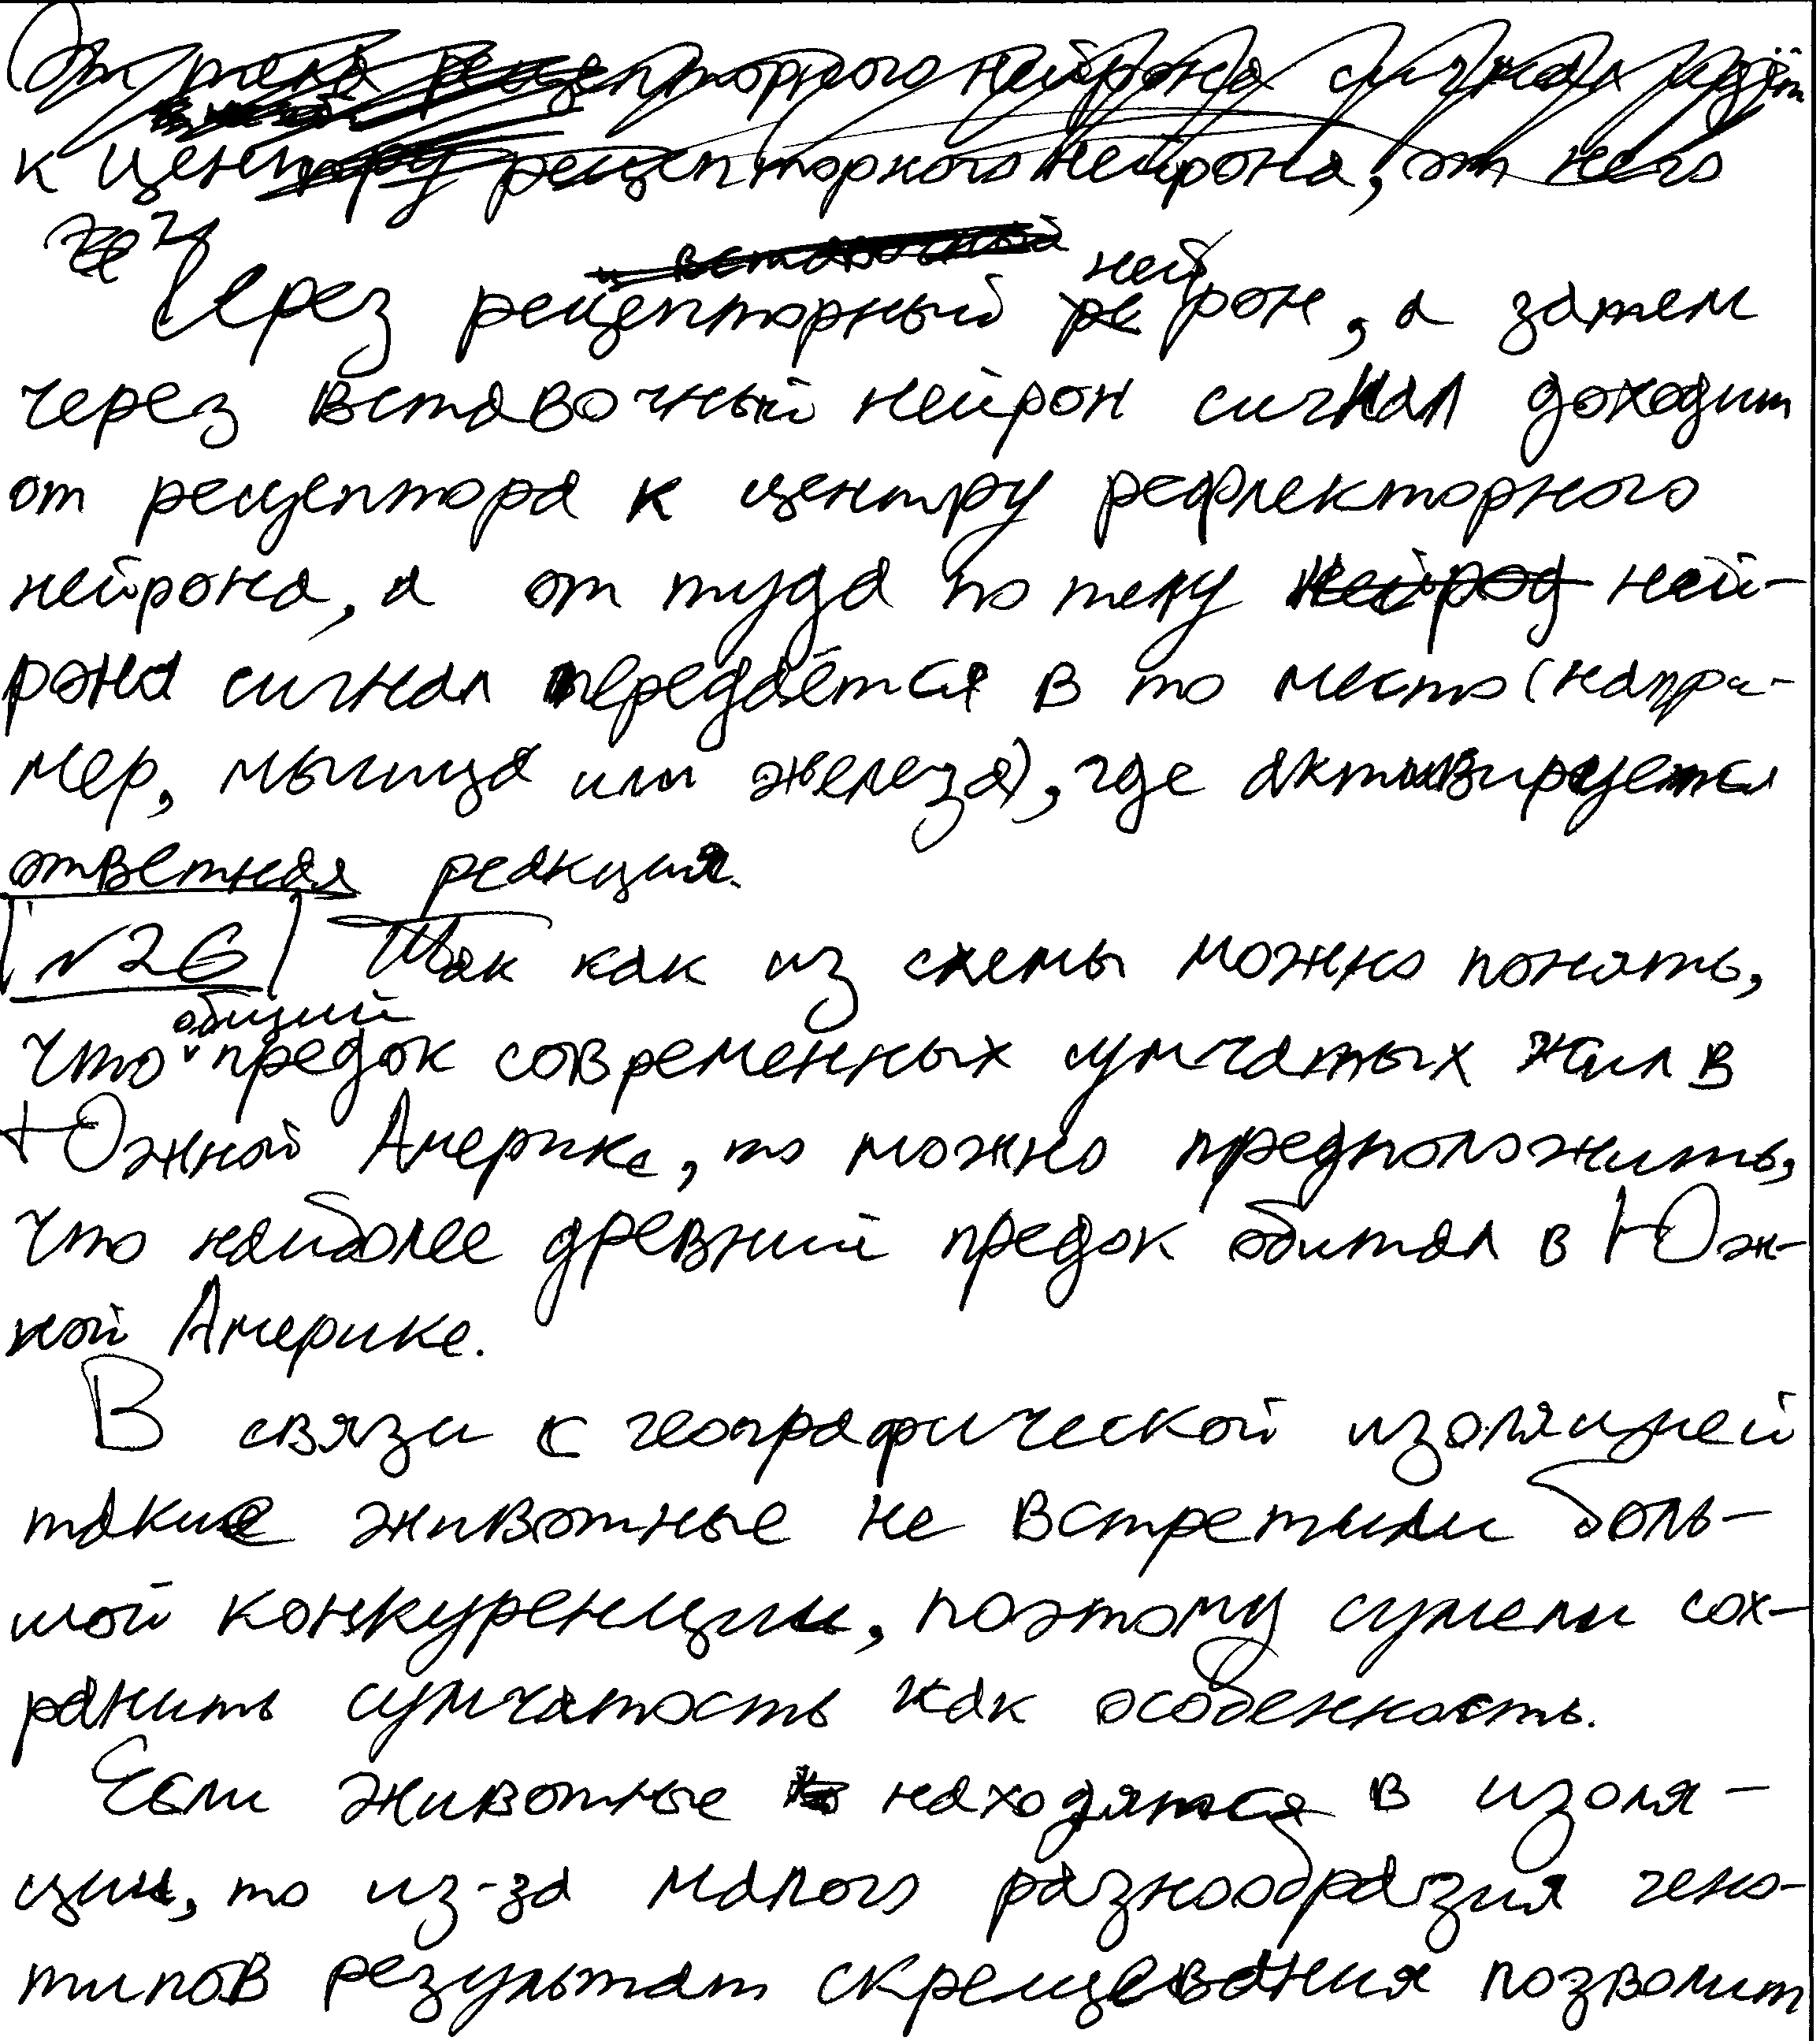 От тела рецепторного нейрона сигнал идёт
к центру рецепторного нейрона, от него
же
и вставочный
ней
Через рецепторный ре рон, а затем
через вставочный нейрон сигнал доходит
от рецептора к центру рефлекторного
нейрона, а от туда по телу нейрод ней-
рона сигнал передаётся в то место (напри-
мер, мышца или железа), где активируется
ответная реакция.
№26 Так как из схемы можно понять,
общий
что предок современных сумчатых жил в
Южной Америке, то можно предположить,
что наиболее древний предок обитал в Юж-
ной Америке.
В связи с географической изоляцией
такие животные не встретили боль-
шой конкуренции, поэтому сумели сох-
ранить сумчатость как особенность.
Если животные находятся в изоля-
ции, то из-за малого разнообразия гено-
типов результат скрещевания позволит